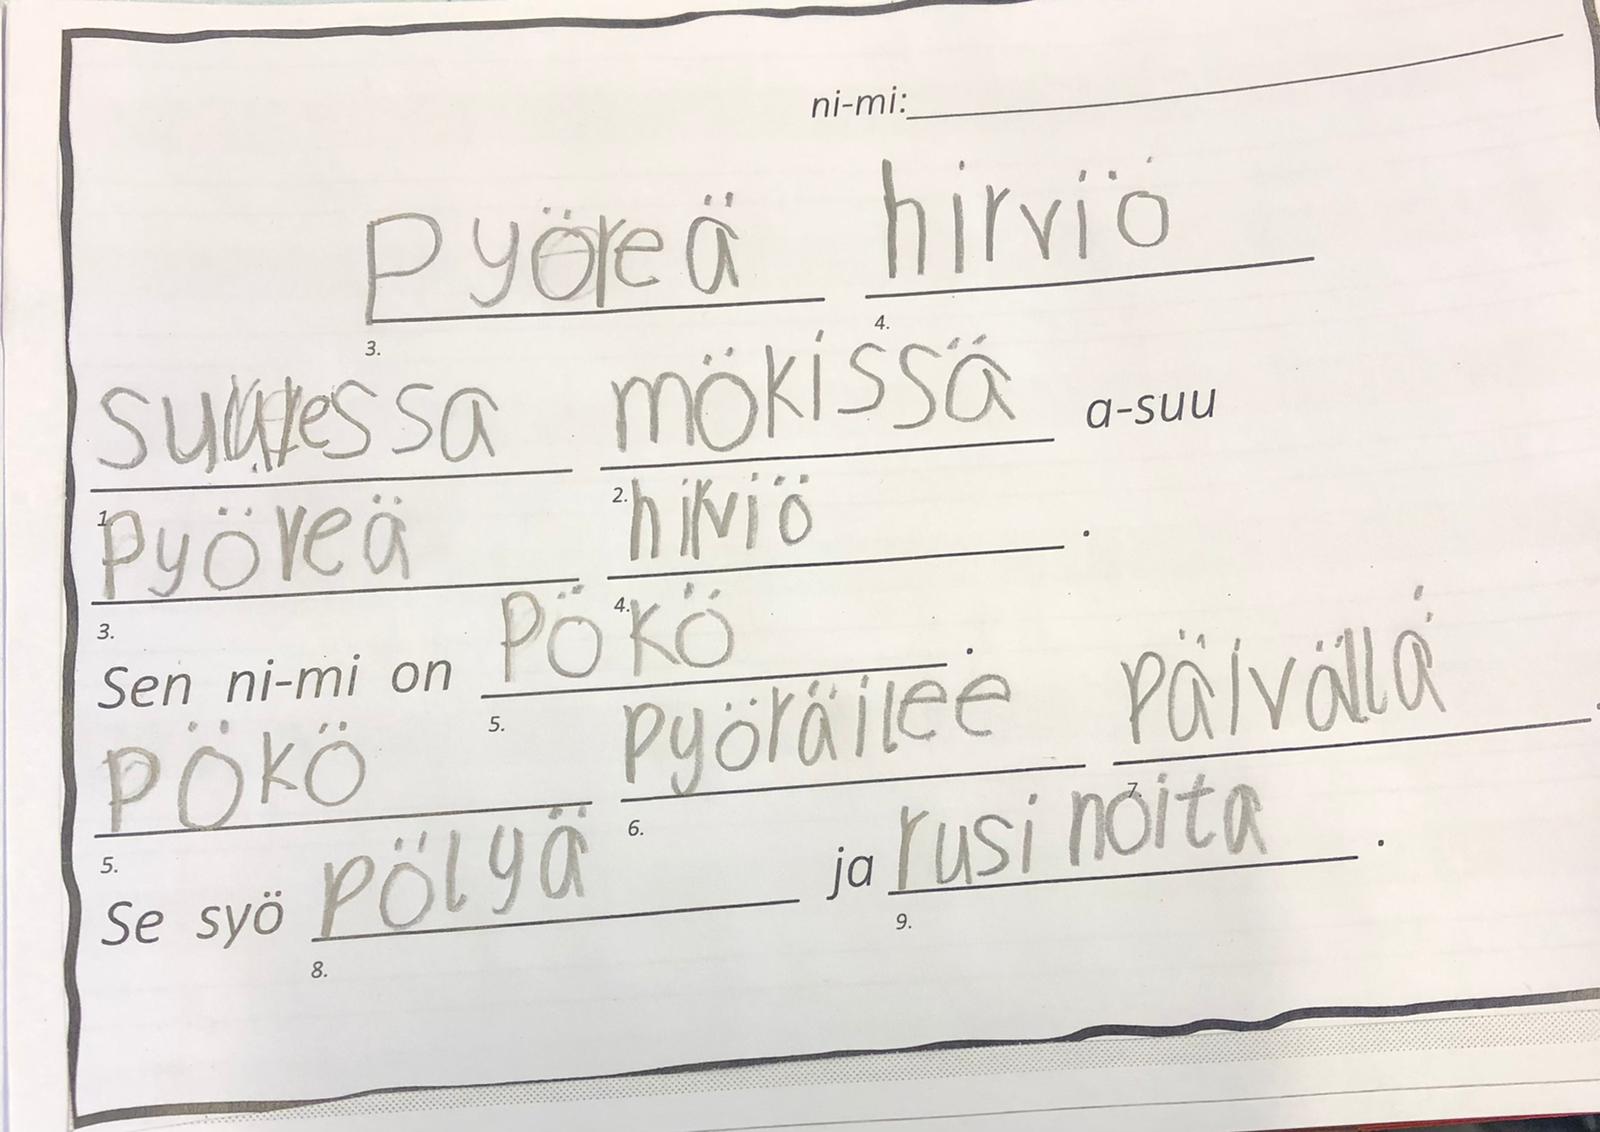 ni-mi:
Pyöreä hirviö
3. 4.
suuressa mökissä a-suu
1. 2.
pyöreä hirviö .
3. 4.
Sen ni-mi on Pökö .
5.
Pökö pyöräilee päivällä .
5. 6. 7.
Se syö pölyä ja rusinoita .
8. 9.